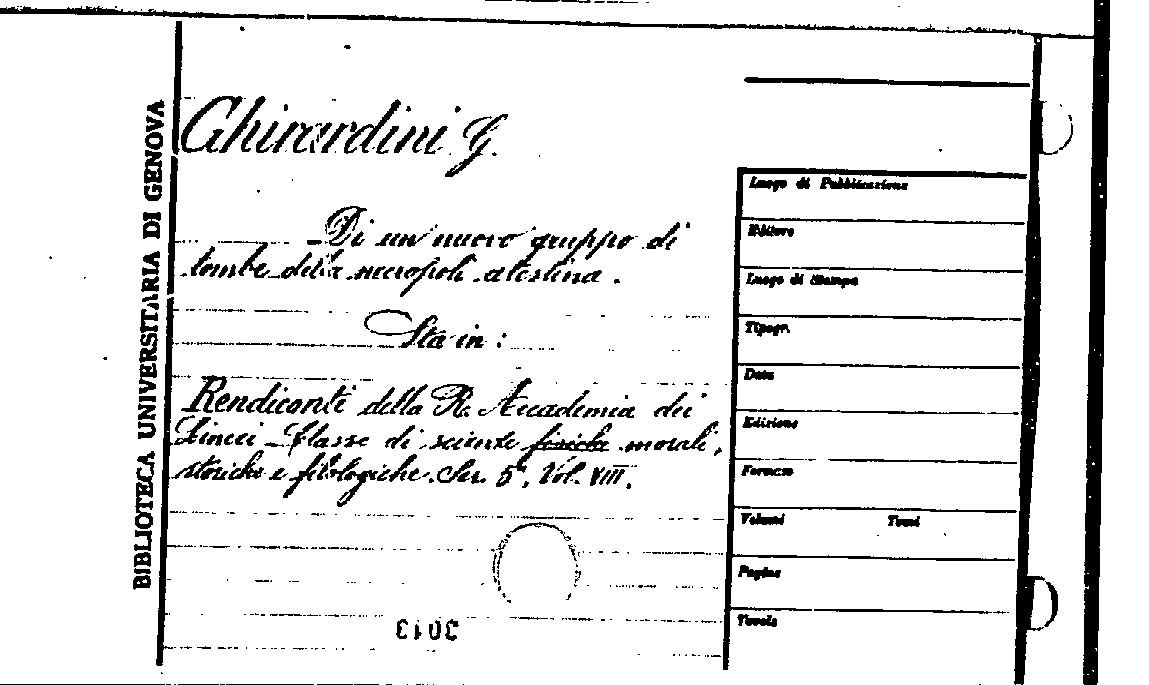 BIBLIOTECA UNIVERSITARIA DI GENOVA
Ghirardini G.
Di un nuovo gruppo di
tombe della necropoli atestina.
Sta in:
Rendiconti della R. Accademia dei
Lincei - Classe di scienze fisiche morali,
storiche e filologiche. Ser. 5ª. Vol. VIII.
Luogo di Pubblicazione
Editore
Luogo di Stampa
Tipogr.
Data
Edizione
Formato
Volumi Tomi
Pagine
Tavole